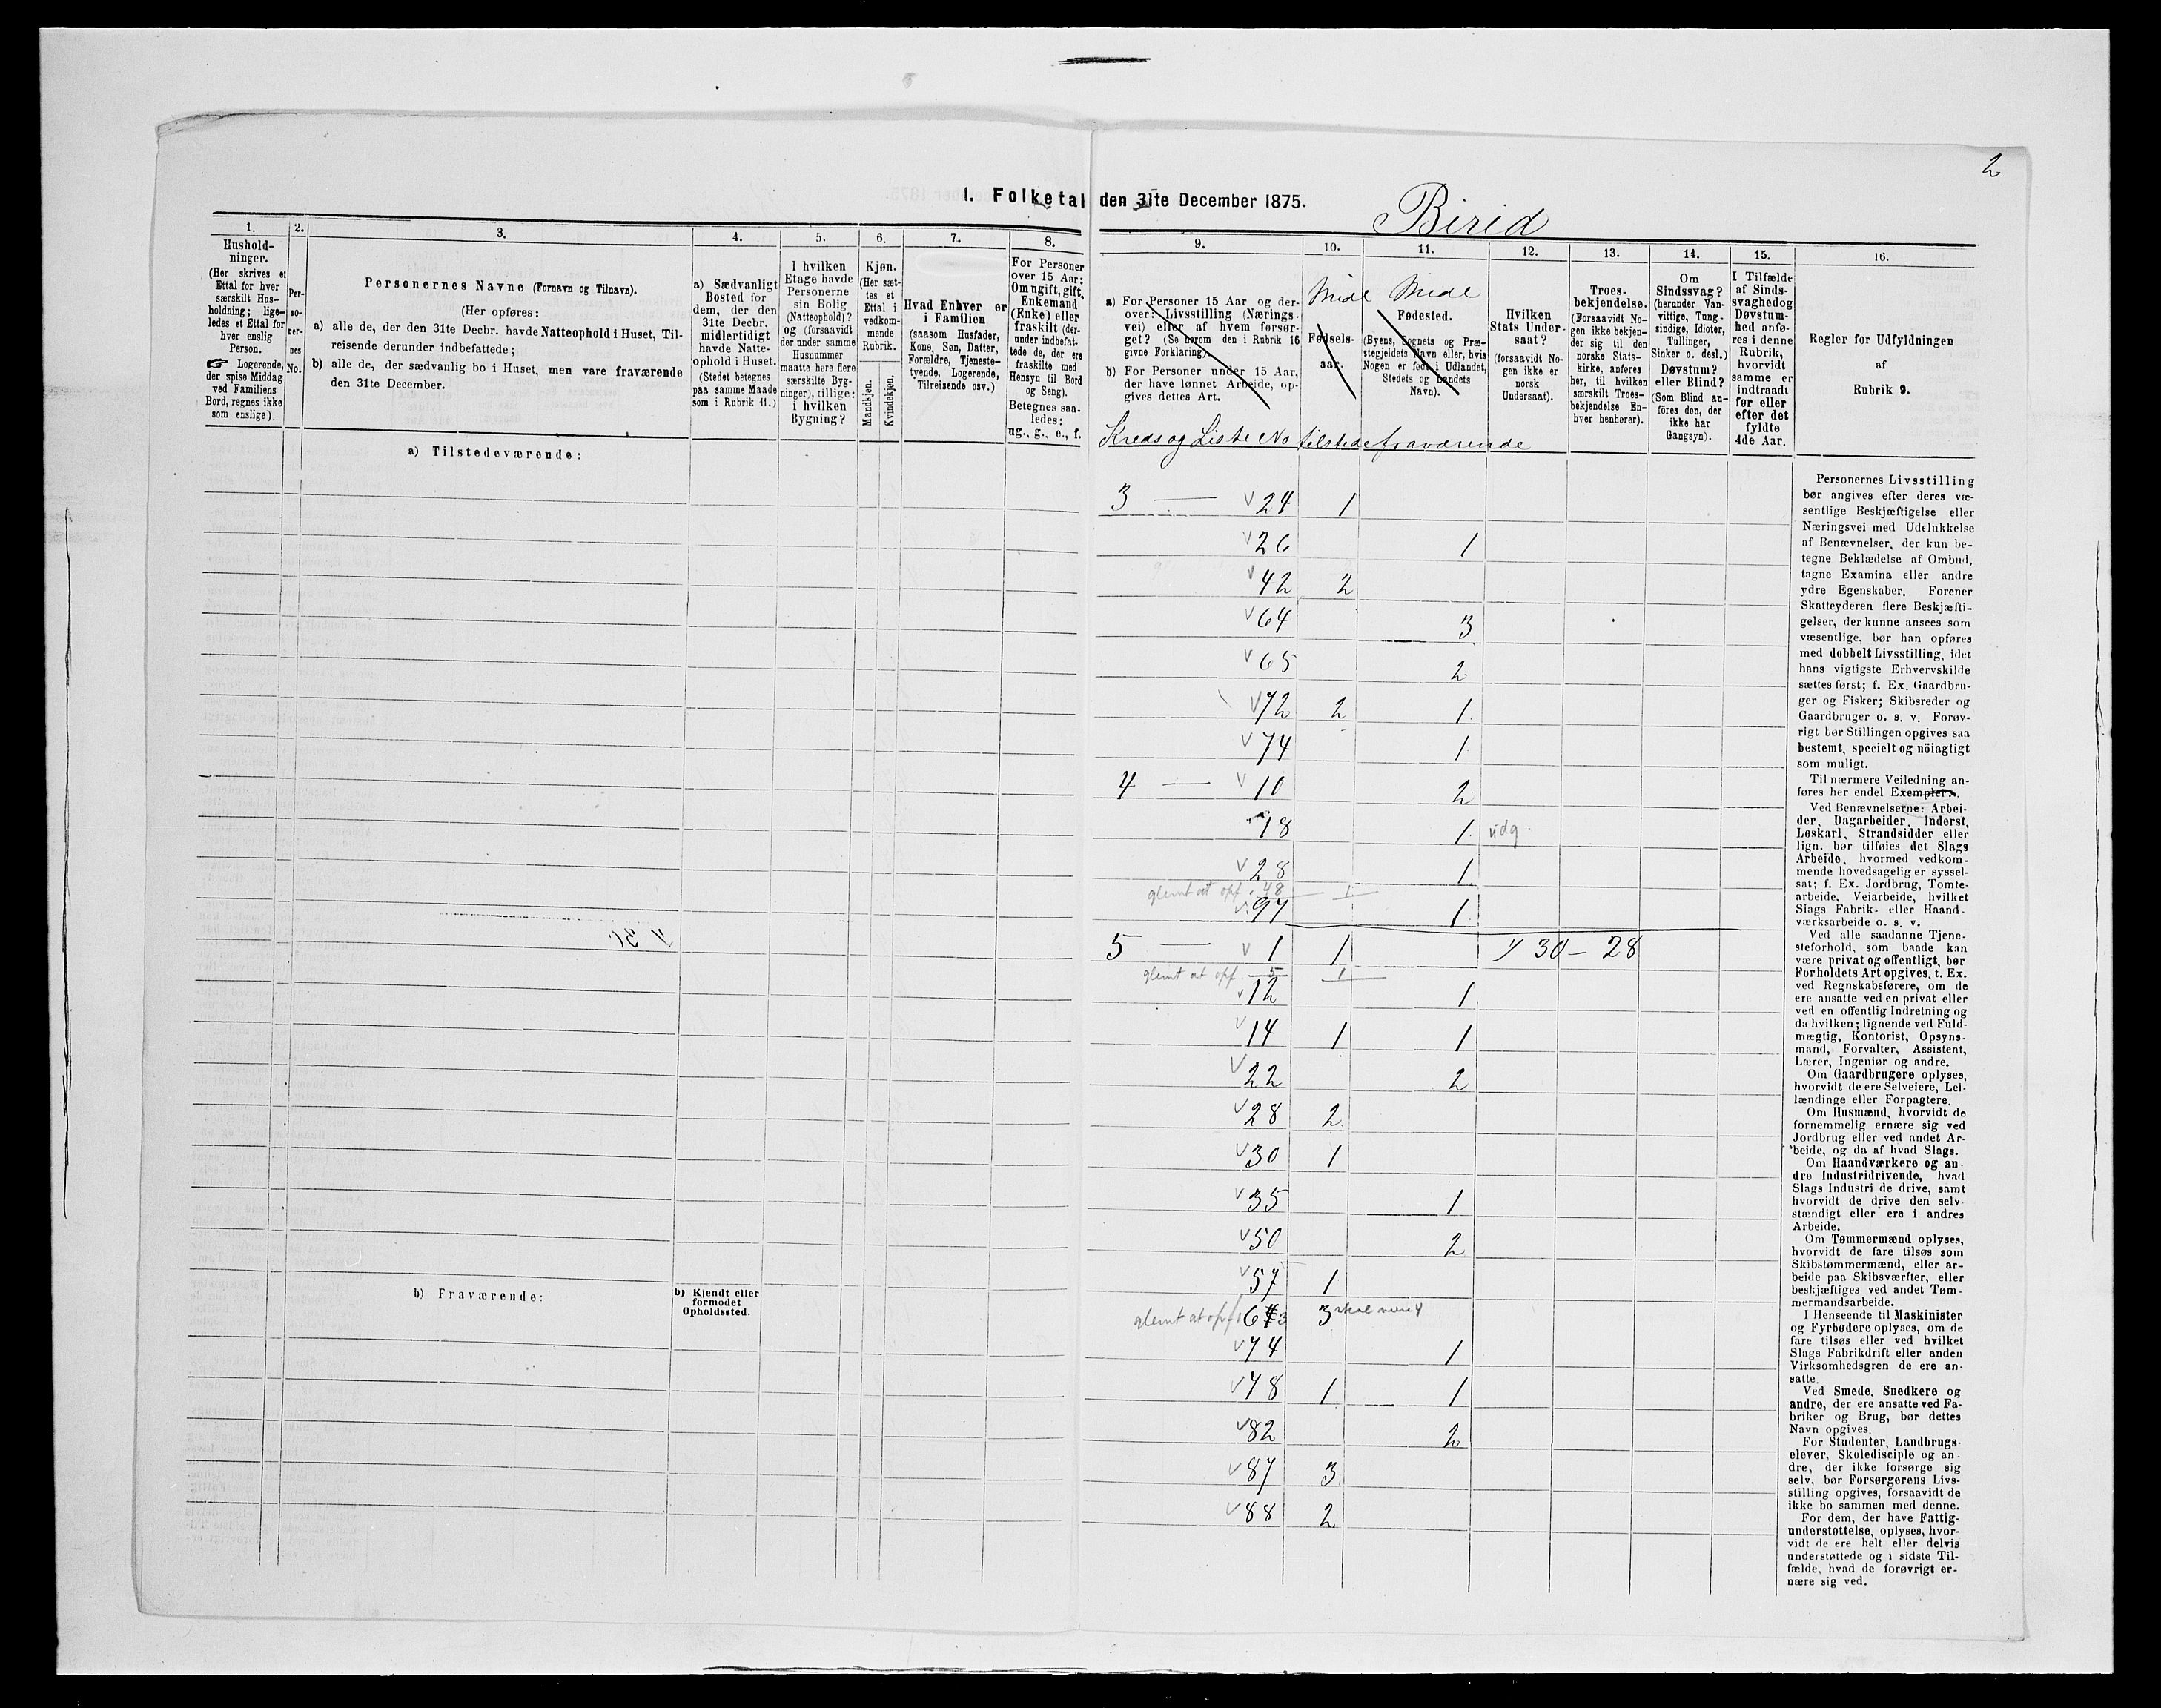 2
I. Folketal den 31te December 1875.
Birid
1.
Hushold-
ninger.
(Her skrives et
Ettal for hver
særskilt Hus-
holdning; lige-
ledes et Ettal for
hver enslig
Person.
☞ Logerende,
der spise Middag
ved Familiens
Bord, regnes ikke
som enslige).
2.
Per-
so-
ner-
nes
No.
3.
Personernes Navne (Fornavn og Tilnavn).
(Her opføres:
a) alle de, der den 31te Decbr. havde Natteophold i Huset, Til-
reisende derunder indbefattede;
b) alle de, der sædvanlig bo i Huset, men vare fraværende
den 31te December.
4.
a) Sædvanligt
Bosted for
dem, der den
31te Decbr.
midlertidigt
havde Natte-
ophold i Huset.
(Stedet betegnes
paa samme Maade
som i Rubrik 11.)
5.
I hvilken
Etage havde
Personerne
sin Bolig
(Natteophold)?
og (forsaavidt
der under samme
Husnummer
maatte høre flere
særskilte Byg-
ninger), tillige:
i hvilken
Bygning?
6.
Kjøn.
(Her sæt-
tes et
Ettal i
vedkom-
mende
Rubrik.
Mandkjøn.
Kvindekjøn.
7.
Hvad Enhver er
i Familien
(saasom Husfader,
Kone, Søn, Datter,
Forældre, Tjeneste-
tyende, Logerende,
Tilreisende osv.)
8.
For Personer
over 15 Aar:
Om ugift, gift,
Enkemand
(Enke) eller
fraskilt (der-
under indbefat-
tede de, der ere
fraskilte med
Hensyn til Bord
og Seng).
Betegnes saa-
ledes:
ug., g., e., f.
9.
a) For Personer 15 Aar og der-
over: Livsstilling (Nærings-
vei) eller af hvem forsør-
get? (Se herom den i Rubrik 16
givne Forklaring).
b) For Personer under 15 Aar,
der have lønnet Arbeide, op-
gives dettes Art.
10.
Midl
Fødsels-
aar.
11.
Midl
Fødested.
(Byens, Sognets og Præ-
stegjeldets Navn eller, hvis
Nogen er født i Udlandet,
Stedets og Landets
Navn).
12.
Hvilken
Stats Under-
saat?
(forsaavidt No-
gen ikke er
norsk
Undersaat).
13.
Troes-
bekjendelse.
(Forsaavidt No-
gen ikke bekjen-
der sig til den
norske Stats-
kirke, anføres
her, til hvilken
særskilt Troes-
bekjendelse En-
hver henhører).
14.
Om
Sindssvag?
(herunder Van-
vittige, Tung-
sindige, Idioter,
Tullinger,
Sinker o. desl.)
Døvstum?
eller Blind?
(Som Blind an-
föres den, der
ikke har
Gangsyn).
15.
I Tilfælde
af Sinds-
svaghed og
Døvstum-
hed anfø-
res i denne
Rubrik,
hvorvidt
samme er
indtraadt
før eller
efter det
fyldte
4de Aar.
16.
Regler for Udfyldningen
af
Rubrik 9.
Kreds og Liste No tilstede fraværende
a) Tilstedeværende:
3 — v 24 1
v 26 1
v 42 2
v 64 3
v 65 2
v 72 2 1
v 74 1
4 — v 10 2
18 1 udg.
v 28 1
glemt at opf. 48 — 1 —
v 97 1
5 — v 1 1 30 – 28
glemt at opf 5 1 —
v 12 1
v 14 1 1
v 22 2
v 28 2
v 30 1
v 35 1
v 50 2
v 57 1
glemt at opf 64 3 3 skal være 4
v 74 1
v 78 1 1
v 82 2
v 87 3
v 88 2
b) Fraværende:
b) Kjendt eller
formodet
Opholdssted.
Personernes Livsstilling
bør angives efter deres væ-
sentlige Beskjæftigelse eller
Næringsvei med Udelukkelse
af Benævnelser, der kun be-
tegne Beklædelse af Ombud,
tagne Examina eller andre
ydre Egenskaber. Forener
Skatteyderen flere Beskjæfti-
gelser, der kunne ansees som
væsentlige, bør han opføres
med dobbelt Livsstilling, idet
hans vigtigste Erhvervskilde
sættes først; f. Ex. Gaardbru-
ger og Fisker; Skibsreder og
Gaardbruger o. s. v. Forøv-
rigt bør Stillingen opgives saa
bestemt, specielt og nöiagtigt
som muligt.
Til nærmere Veiledning an-
føres her endel Exempler:
Ved Benævnelserne: Arbei-
der, Dagarbeider, Inderst,
Løskarl, Strandsidder eller
lign. bør tilføies det Slags
Arbeide, hvormed vedkom-
mende hovedsagelig er syssel-
sat; f. Ex. Jordbrug, Tomte-
arbeide, Veiarbeide, hvilket
Slags Fabrik- eller Haand-
værksarbeide o. s. v.
Ved alle saadanne Tjene-
steforhold, som baade kan
være privat og offentligt, bør
Forholdets Art opgives, t. Ex.
ved Regnskabsførere, om de
ere ansatte ved en privat eller
ved en offentlig Indretning og
da hvilken; lignende ved Fuld-
mægtig, Kontorist, Opsyns-
mand, Forvalter, Assistent,
Lærer, Ingeniør og andre.
Om Gaardbrugere oplyses,
hvorvidt de ere Selveiere, Lei-
lændinge eller Forpagtere.
Om Husmænd, hvorvidt de
fornemmelig ernære sig ved
Jordbrug eller ved andet Ar-
beide, og da af hvad Slags.
Om Haandværkere og an-
dre Industridrivende, hvad
Slags Industri de drive, samt
hvorvidt de drive den selv-
stændigt eller ere i andres
Arbeide.
Om Tømmermænd oplyses,
hvorvidt de fare tilsøs som
Skibstømmermænd, eller ar-
beide paa Skibsværfter, eller
beskjæftiges ved andet Tøm-
mermandsarbeide.
I Henseende til Maskinister
og Fyrbødere oplyses, om de
fare tilsøs eller ved hvilket
Slags Fabrikdrift eller anden
Virksomhedsgren de ere an-
satte.
Ved Smede, Snedkere og
andre, der ere ansatte ved Fa-
briker og Brug, bør dettes
Navn opgives.
For Studenter, Landbrugs-
elever, Skoledisciple og an-
dre, der ikke forsørge sig
selv, bør Forsørgerens Livs-
stilling opgives, forsaavidt de
ikke bo sammen med denne.
For dem, der have Fattig-
understøttelse, oplyses, hvor-
vidt de ere helt eller delvis
understøttede og i sidste Til-
fælde, hvad de forøvrigt er-
nære sig ved.